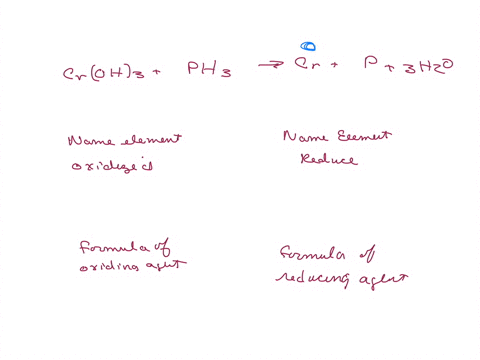 0
Cr(OH)3 + PH3 → Cr + P + 3H2O
Name element
oxidized
Name Element
Reduce
Formula of
oxiding agent
Formula of
reducing agent